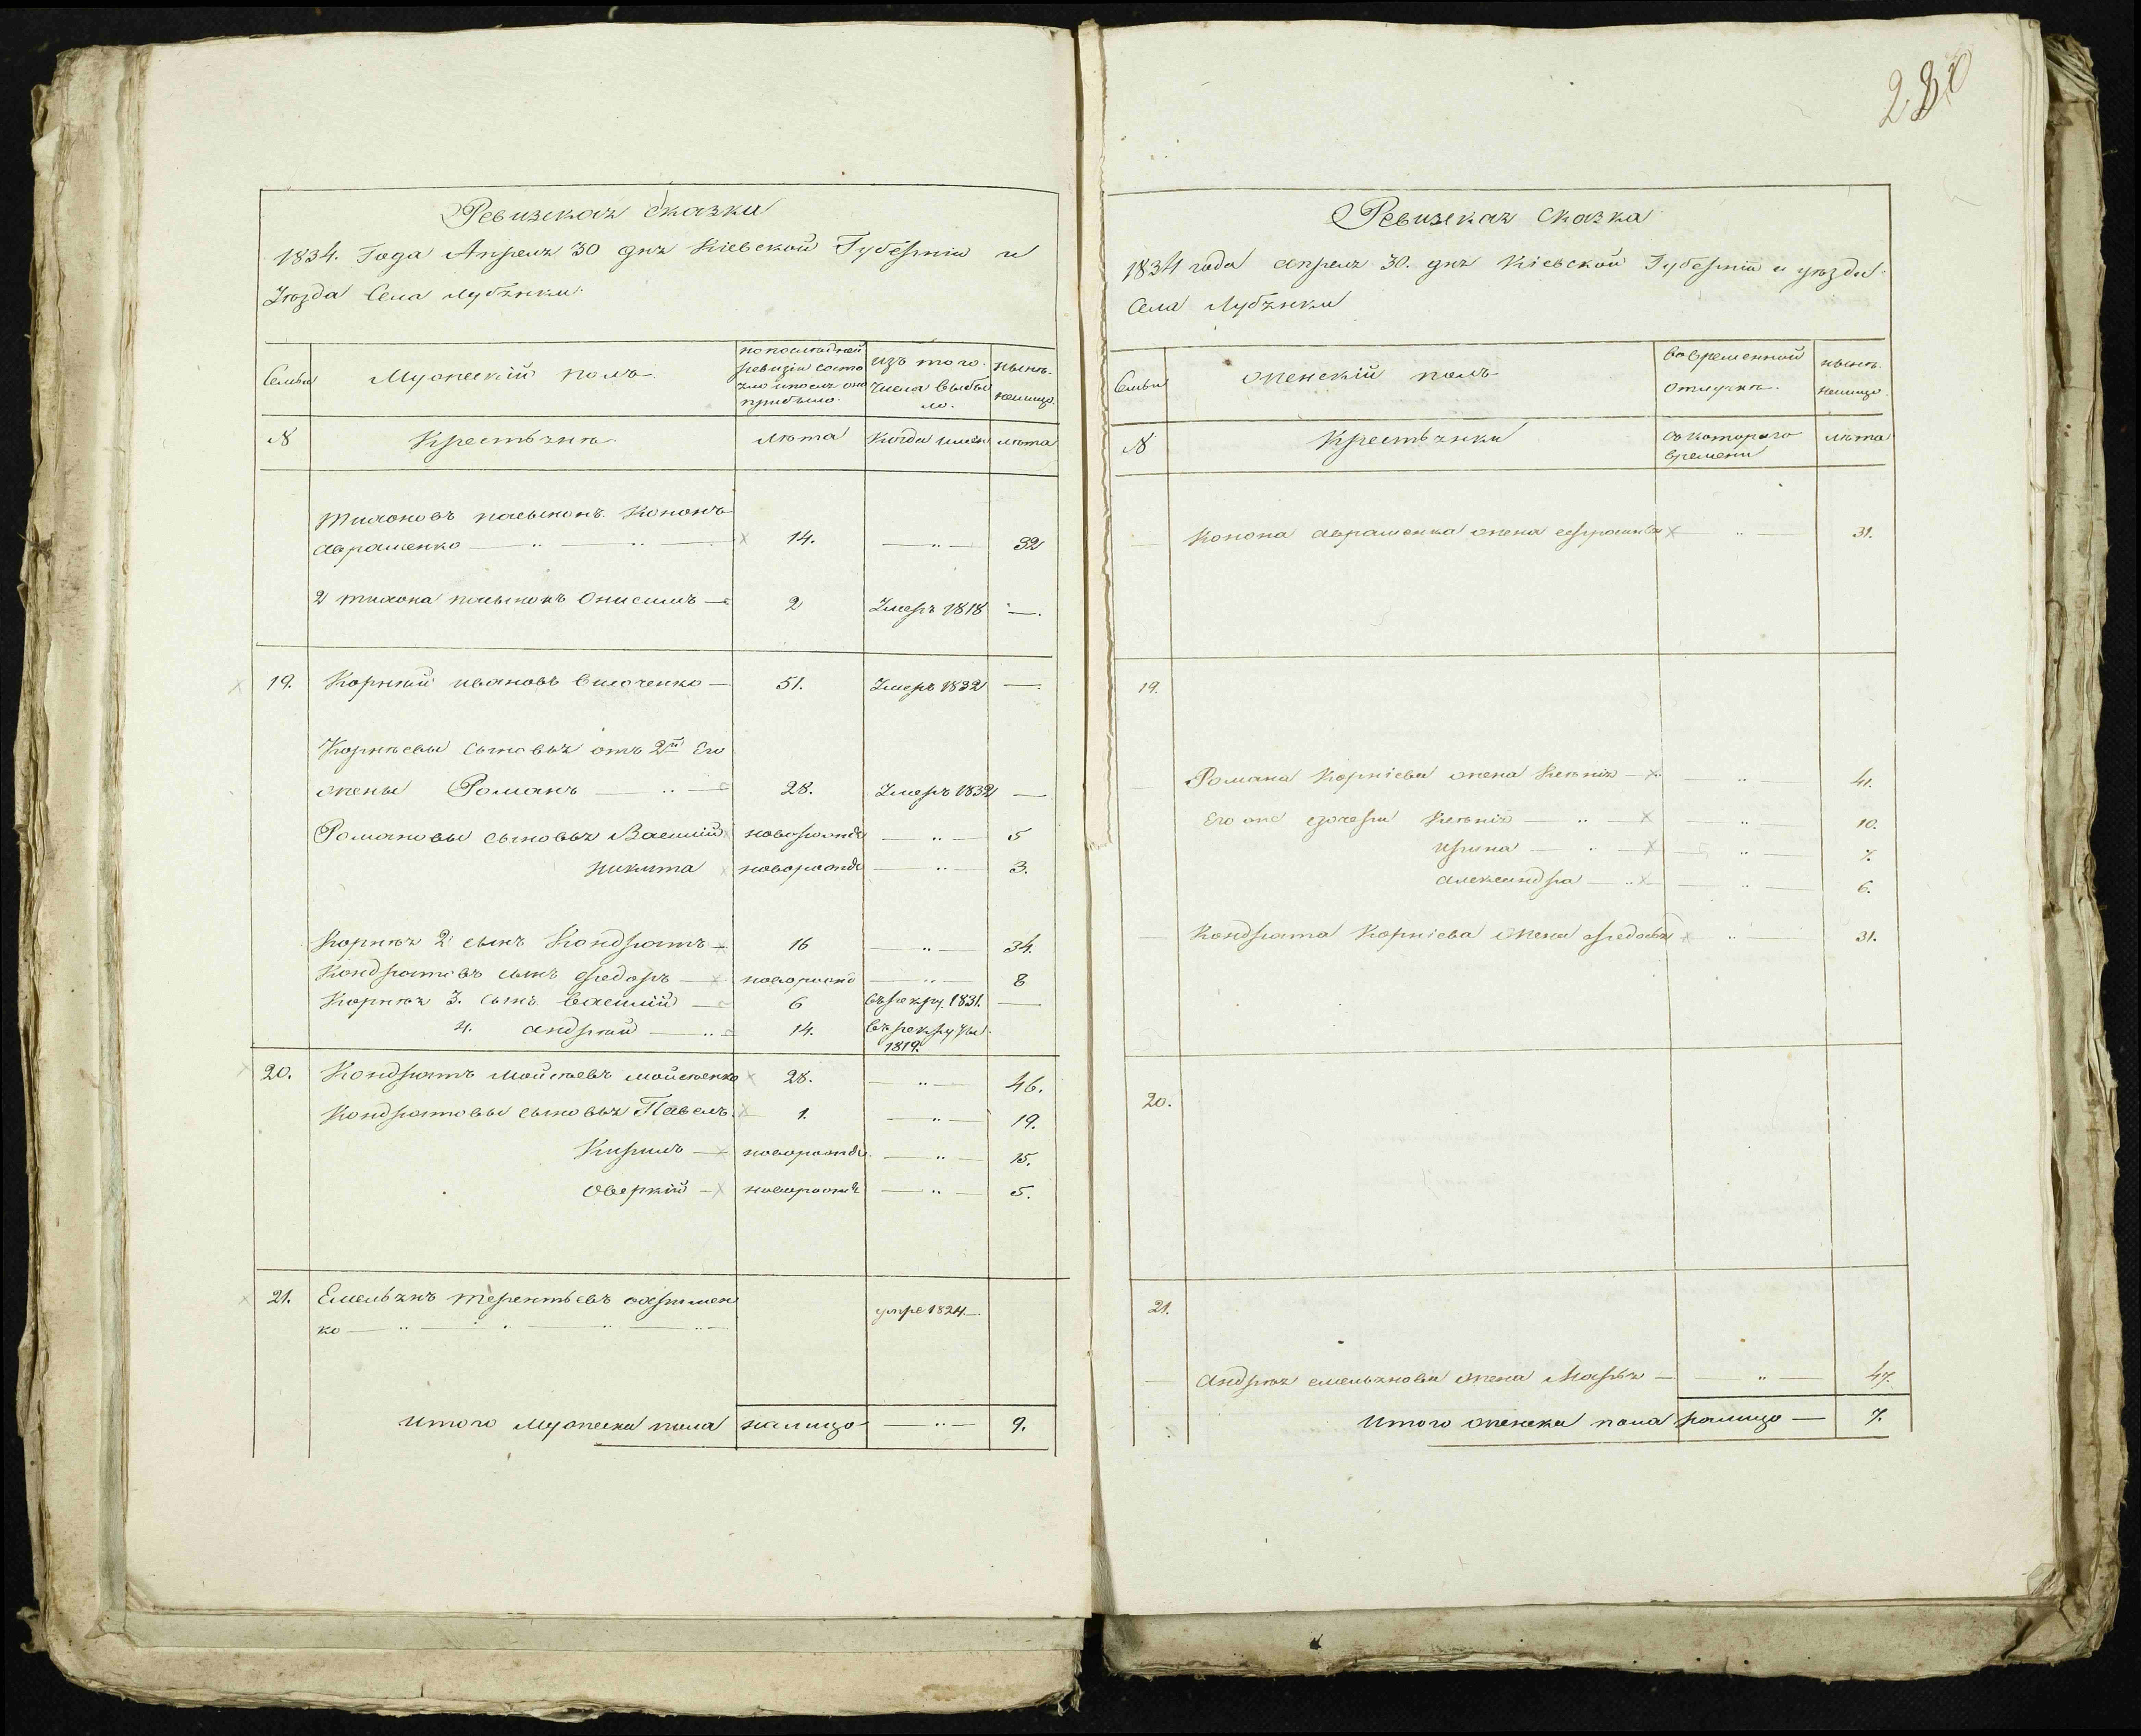 280
Ревизская сказка
1834. Года Апреля 30 дня Кіевской Губерніи и
Уезда Села Лубянки.
Семьи
Мужескій полъ
по последней
ревизіи состо
яло и после оно
прибыло.
изъ того.
числа выбы
ло.
ныне.
налицо.
№
Крестьяне.
лета
Когда имен
лета
Тихоновъ пасынокъ Кононъ
Аврашенко — 14. — 32
2 Тихона пасынокъ Онисимъ — 2 Умеръ 1818 —.
19. Корнѣй Ивановъ — 51. Умеръ 1832 —.
Корнѣевы сыновья отъ 2й Его
жены Романъ — 28. Умеръ 1832 —
Романовы сыновья Василій новорожде — 5
Никита новорожде — 3.
Корнѣя 2 сынъ Кондратъ — 16 — 34.
Кондратовъ сынъ Федоръ — новорожд — 8
Корнѣя 3. сынъ Василій — 6 въ рекру. 1831. —
4. Андрѣй — 14. въ рекруты
1819.
20. Кондратъ Мойсѣевъ Мойсѣенко 28. — 46.
Кондратовы сыновья Павелъ. 1. — 19.
Кирилъ — новорожде. — 15.
Оверкій — новорожде — 5.
21. Емельянъ Терентьевъ
ко — умре 1824 —.
Итого Мужеска пола налицо — 9.
Ревизская Сказка
1834 года апреля 30. дня Кіевской Губерніи и уезда
Села Лубянки
Семьи
женскій полъ
во временной
отлучке.
ныне.
налицо.
№
Крестьянки
съ которого
времени
лета
Конона Аврашенка жена — 31.
19.
Романа Корніева жена Ксенія — 41.
Его же дочери Ксенія — 10.
Ирина — 7.
Александра — 6.
Кондрата Корніева жена Федосья — 31.
20.
21.
Андрѣя Емельянова жена Марья — 47.
Итого женска пола налицо — 7.